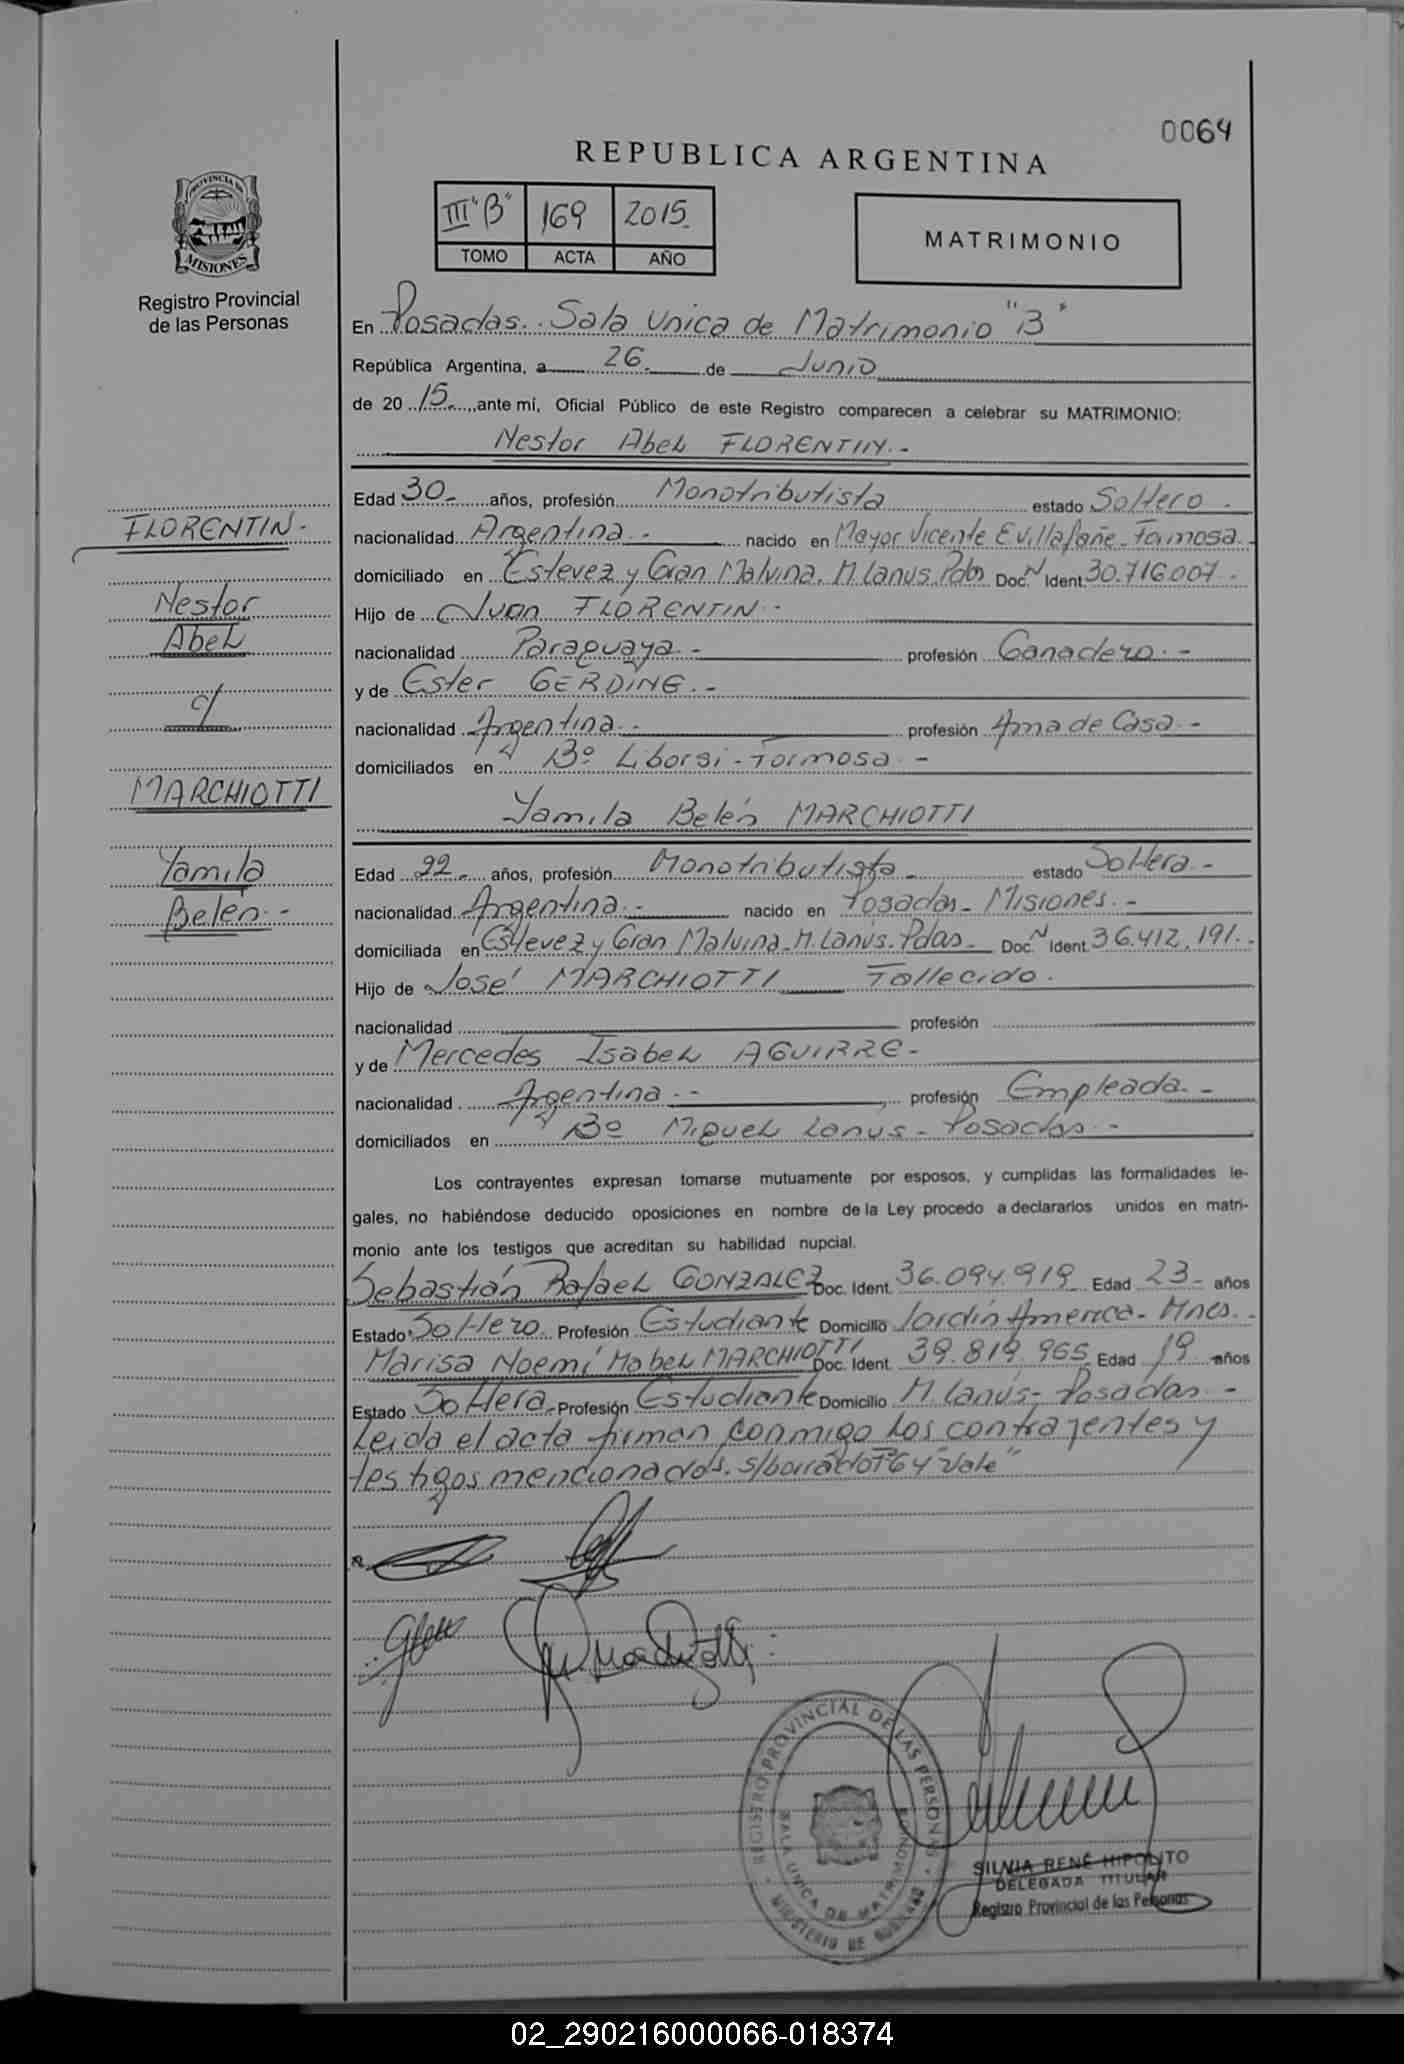 0064
REPUBLICA ARGENTINA
III "B" 169 2015.
TOMO ACTA AÑO
MATRIMONIO
PROVINCIA DE
MISIONES
Registro Provincial
de las Personas
En Posadas. Sala Unica de Matrimonio "B"
República Argentina, a 26. de Junio
de 20 15. ante mí, Oficial Público de este Registro comparecen a celebrar su MATRIMONIO:
Nestor Abel FLORENTIN.-
Edad 30.- años, profesión Monotributista estado Soltero.-
FLORENTIN.-
nacionalidad Argentina.- nacido en Mayor Vicente E Villafañe - Formosa.-
domiciliado en Estevez y Gran Malvina. M. Lanus. Pdas Doc. N Ident. 30.716.007.-
Nestor
Hijo de Juan FLORENTIN.-
Abel
nacionalidad Paraguaya.- profesión Ganadero.-
y de Ester GERDING.-
c/
nacionalidad Argentina.- profesión Ama de Casa.-
domiciliados en Bº Liborsi - Formosa.-
MARCHIOTTI
Yamila Belén MARCHIOTTI
Yamila
Edad 22.- años, profesión Monotributista.- estado Soltera.-
Belén.-
nacionalidad Argentina.- nacido en Posadas - Misiones.-
domiciliada en Estevez y Gran Malvina - M. Lanús. Pdas.- Doc. N Ident. 36.412.191.-
Hijo de José MARCHIOTTI Fallecido.
nacionalidad profesión
y de Mercedes Isabel AGUIRRE-
nacionalidad Argentina.- profesión Empleada.-
domiciliados en Bº Miguel Lanús - Posadas.-
Los contrayentes expresan tomarse mutuamente por esposos, y cumplidas las formalidades le-
gales, no habiéndose deducido oposiciones en nombre de la Ley procedo a declararlos unidos en matri-
monio ante los testigos que acreditan su habilidad nupcial.
Sebastián Rafael GONZALEZ Doc. Ident. 36.094.919 Edad 23- años
Estado Soltero Profesión Estudiante Domicilio Jardín America - Mnes.-
Marisa Noemí Mabel MARCHIOTTI Doc. Ident. 39.819.965 Edad 19 años
Estado Soltera Profesión Estudiante Domicilio M. Lanús - Posadas.-
Leida el acta firman conmigo los contrayentes y
testigos mencionados. s/borrado Fº 64 "Vale"
REGISTRO PROVINCIAL DE LAS PERSONAS
SALA UNICA DE MATRIMONIO
MINISTERIO DE GOBIERNO
SILVIA RENÉ HIPOLITO
DELEGADA TITULAR
Registro Provincial de las Personas
02_290216000066-018374